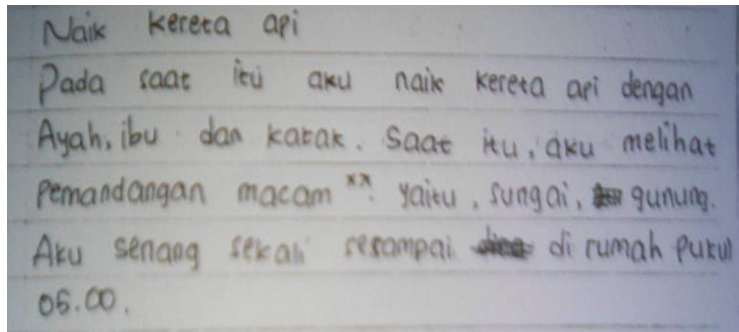 Naik kereta api
Pada saat itu aku naik kereta api dengan
Ayah, ibu dan kakak. Saat itu, aku melihat
Pemandangan macam xx. yaitu, sungai, gunung.
Aku senang sekali sesampai di rumah Pukul
05.00.